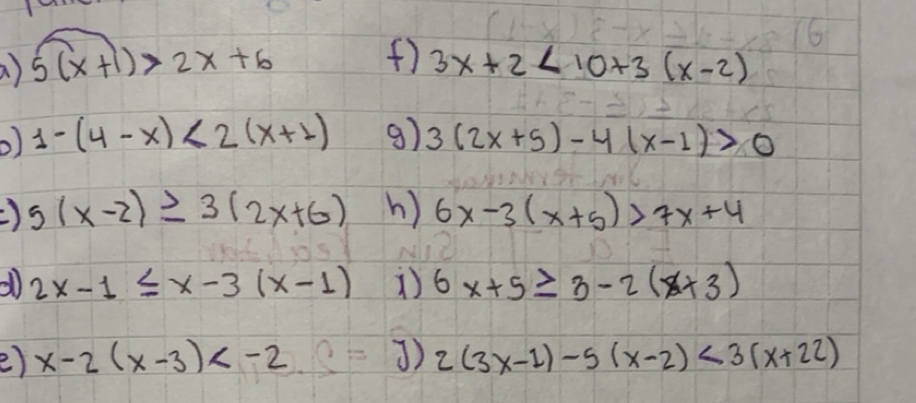 a) 5(x+1) > 2x+6
f) 3x+2 < 10+3(x-2)
b) 1-(4-x) < 2(x+1)
g) 3(2x+5)-4(x-1) > 0
c) 5(x-2) ≥ 3(2x+6)
h) 6x-3(x+5) > 7x+4
d) 2x-1 ≤ x-3(x-1)
i) 6x+5 ≥ 3-2(x+3)
e) x-2(x-3) < -2
j) 2(3x-1)-5(x-2) < 3(x+22)